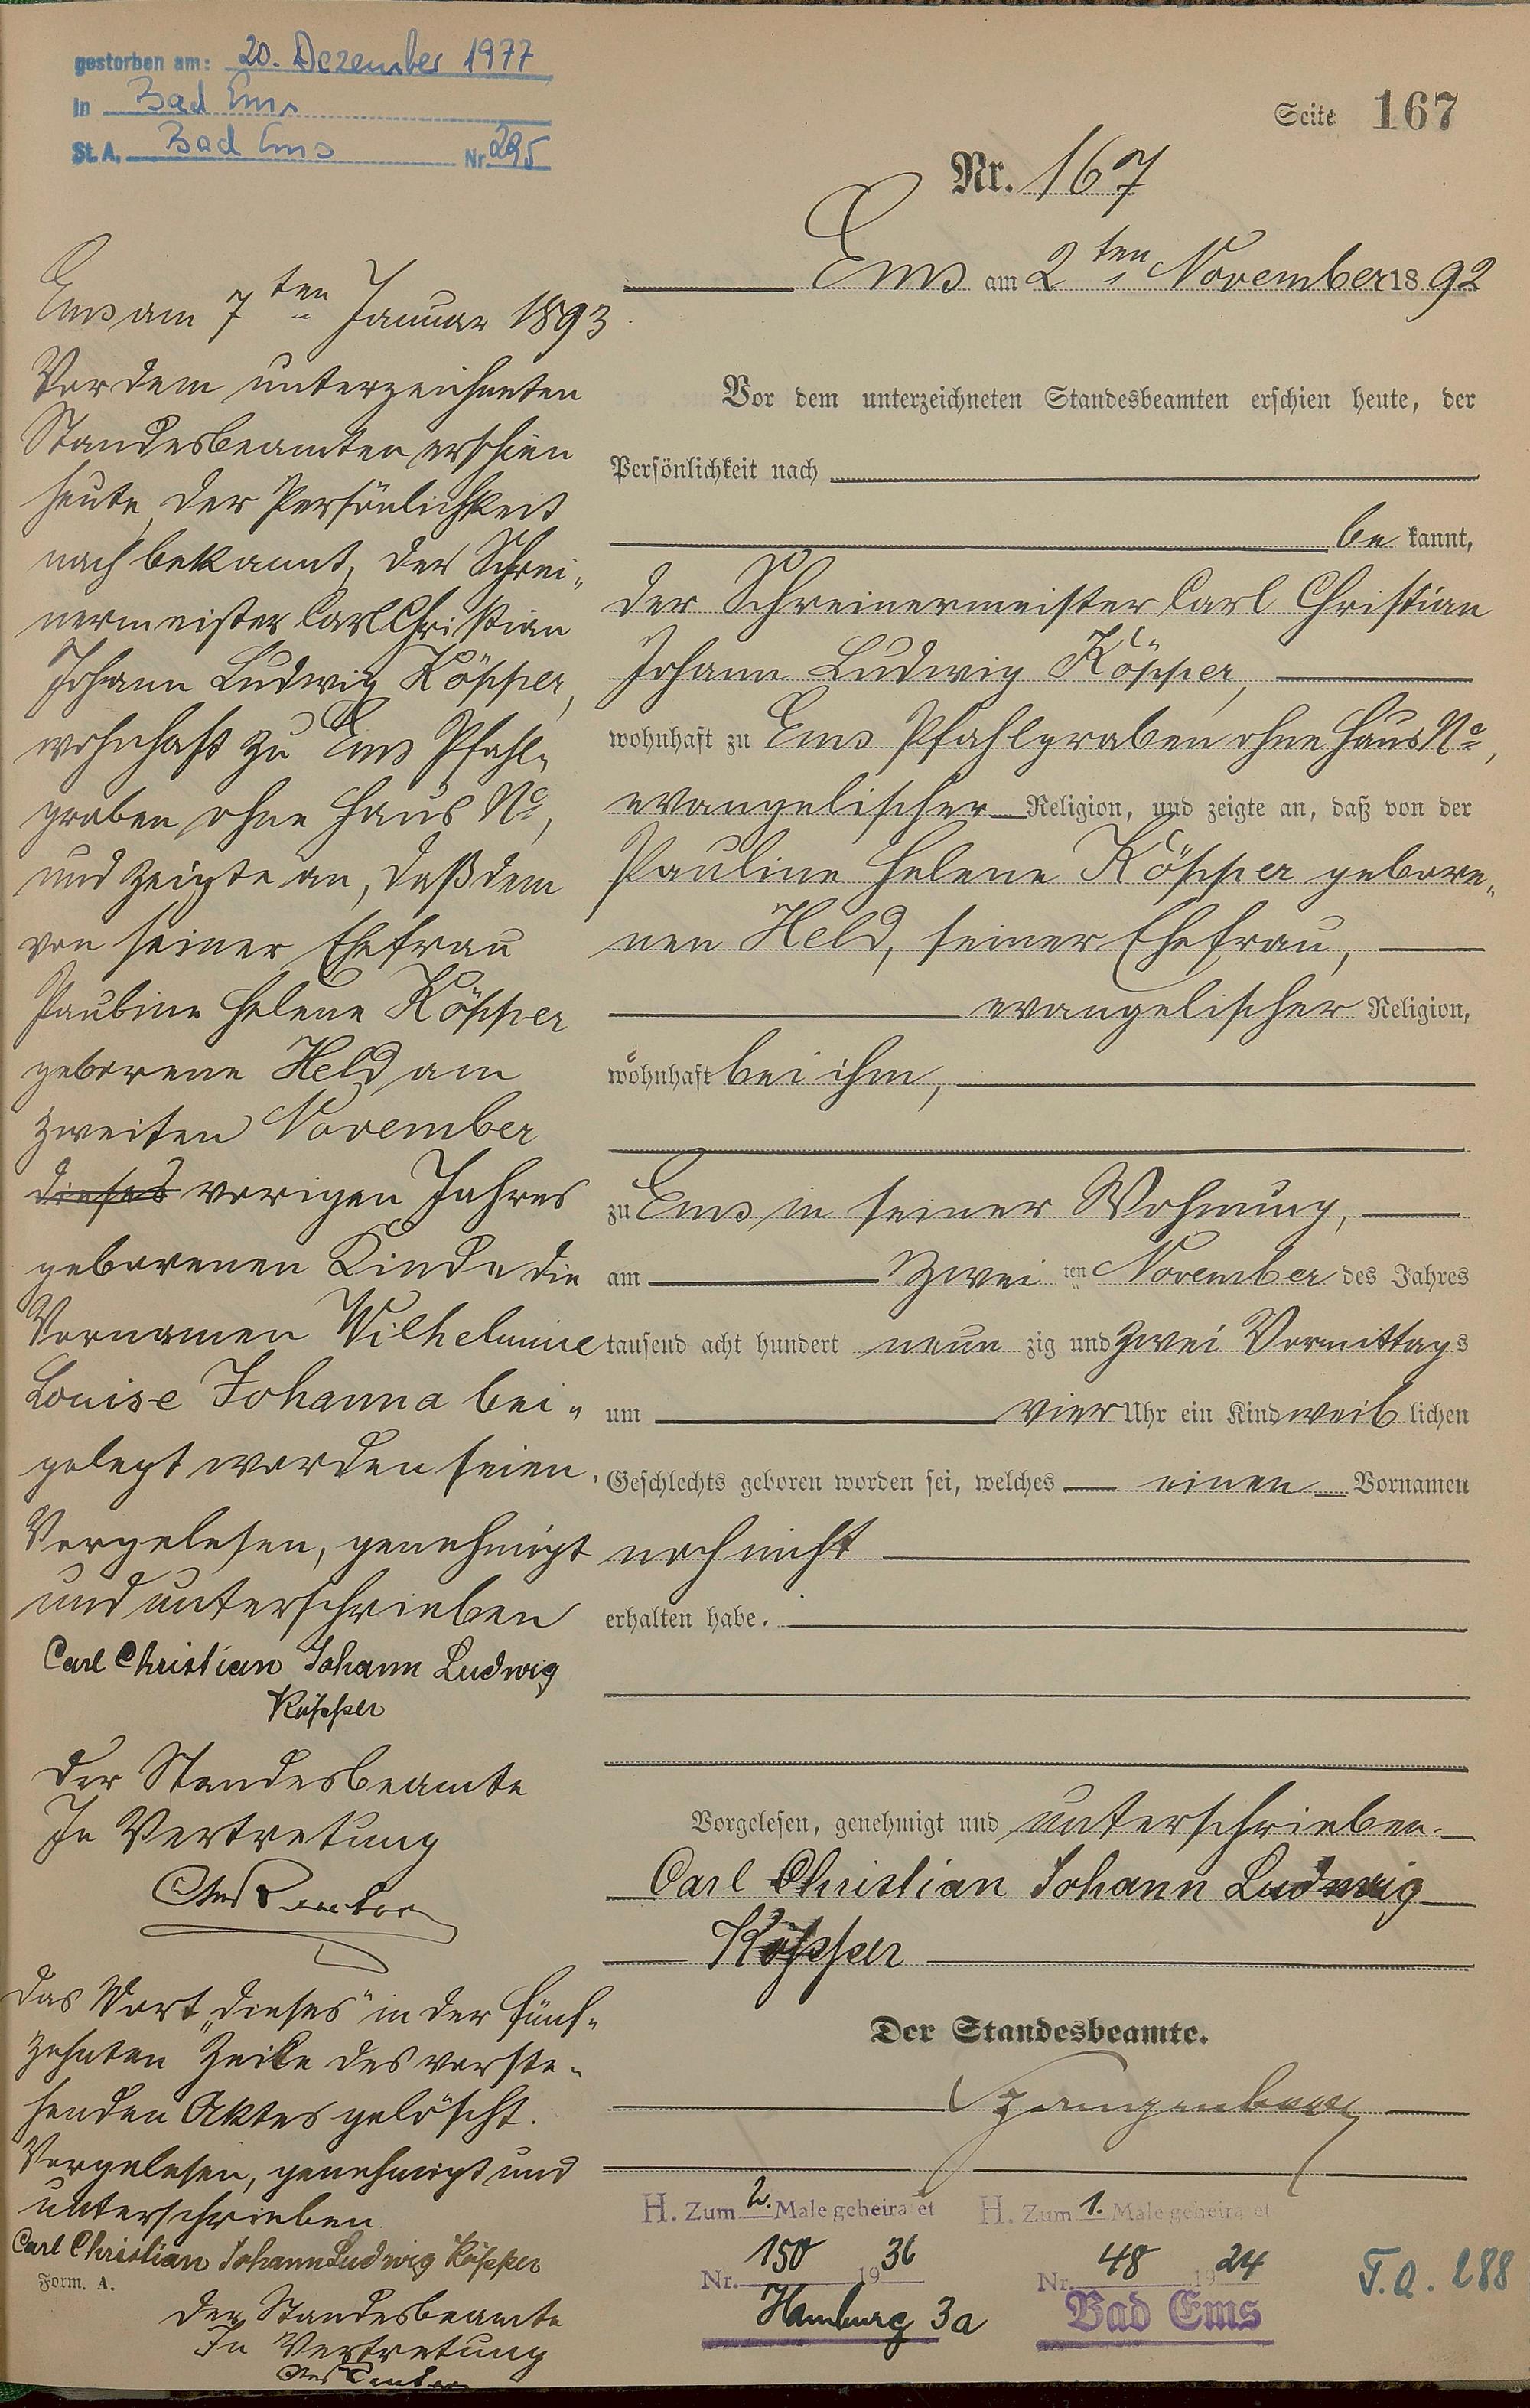 gestorben am: 20. Dezember 1977
in Bad Ems
St. A. Bad Ems Nr. 295
Seite 167
Nr. 167
Ems am 2ten November 1892
Vor dem unterzeichneten Standesbeamten erschien heute, der
Persönlichkeit nach
be kannt,
der Schreinermeister Carl Christian
Johann Ludwig Köpper,
wohnhaft zu Ems Pfahlgraben ohne Haus No,
evangelischer Religion, und zeigte an, daß von der
Pauline Helene Köpper gebore„
nen Held, seiner Ehefrau,
evangelischer Religion,
wohnhaft bei ihm,
zu Ems in seiner Wohnung,
am zwei ten November des Jahres
tausend acht hundert neun zig und zwei Vormittags
um vier Uhr ein Kind weib lichen
Geschlechts geboren worden sei, welches einen Vornamen
noch nicht
erhalten habe.
Vorgelesen, genehmigt und unterschrieben.
Carl Christian Johann Ludwig
Köpper
Der Standesbeamte.
Ems am 7ten Januar 1893
Vor dem unterzeichneten
Standesbeamten erschien
heute, der Persönlichkeit
nach bekannt, der Schrei„
nermeister Carl Christian
Johann Ludwig Köpper,
wohnhaft zu Ems Pfahl„
graben ohne Haus No,
und zeigte an, daß dem
von seiner Ehefrau
Pauline Helene Köpper
geborene Held am
zweiten November
dieses vorigen Jahres
geborenen Kinde die
Vornamen Wilhelmine
Louise Johanna bei„
gelegt worden seien.
Vorgelesen, genehmigt
und unterschrieben
Carl Christian Johann Ludwig
Köpper
Der Standesbeamte
In Vertretung
Das Wort „dieses" in der fünf„
zehnten Zeile des vorste„
henden Aktes gelöscht.
Vorgelesen, genehmigt und
unterschrieben
Carl Christian Johann Ludwig Köpper
Form. A.
Der Standesbeamte
In Vertretung
H. Zum 2. Male geheiratet
Nr. 150 1936
Hamburg 3a
H. Zum 1. Male geheiratet
Nr. 48 1924
Bad Ems
T.A. 288